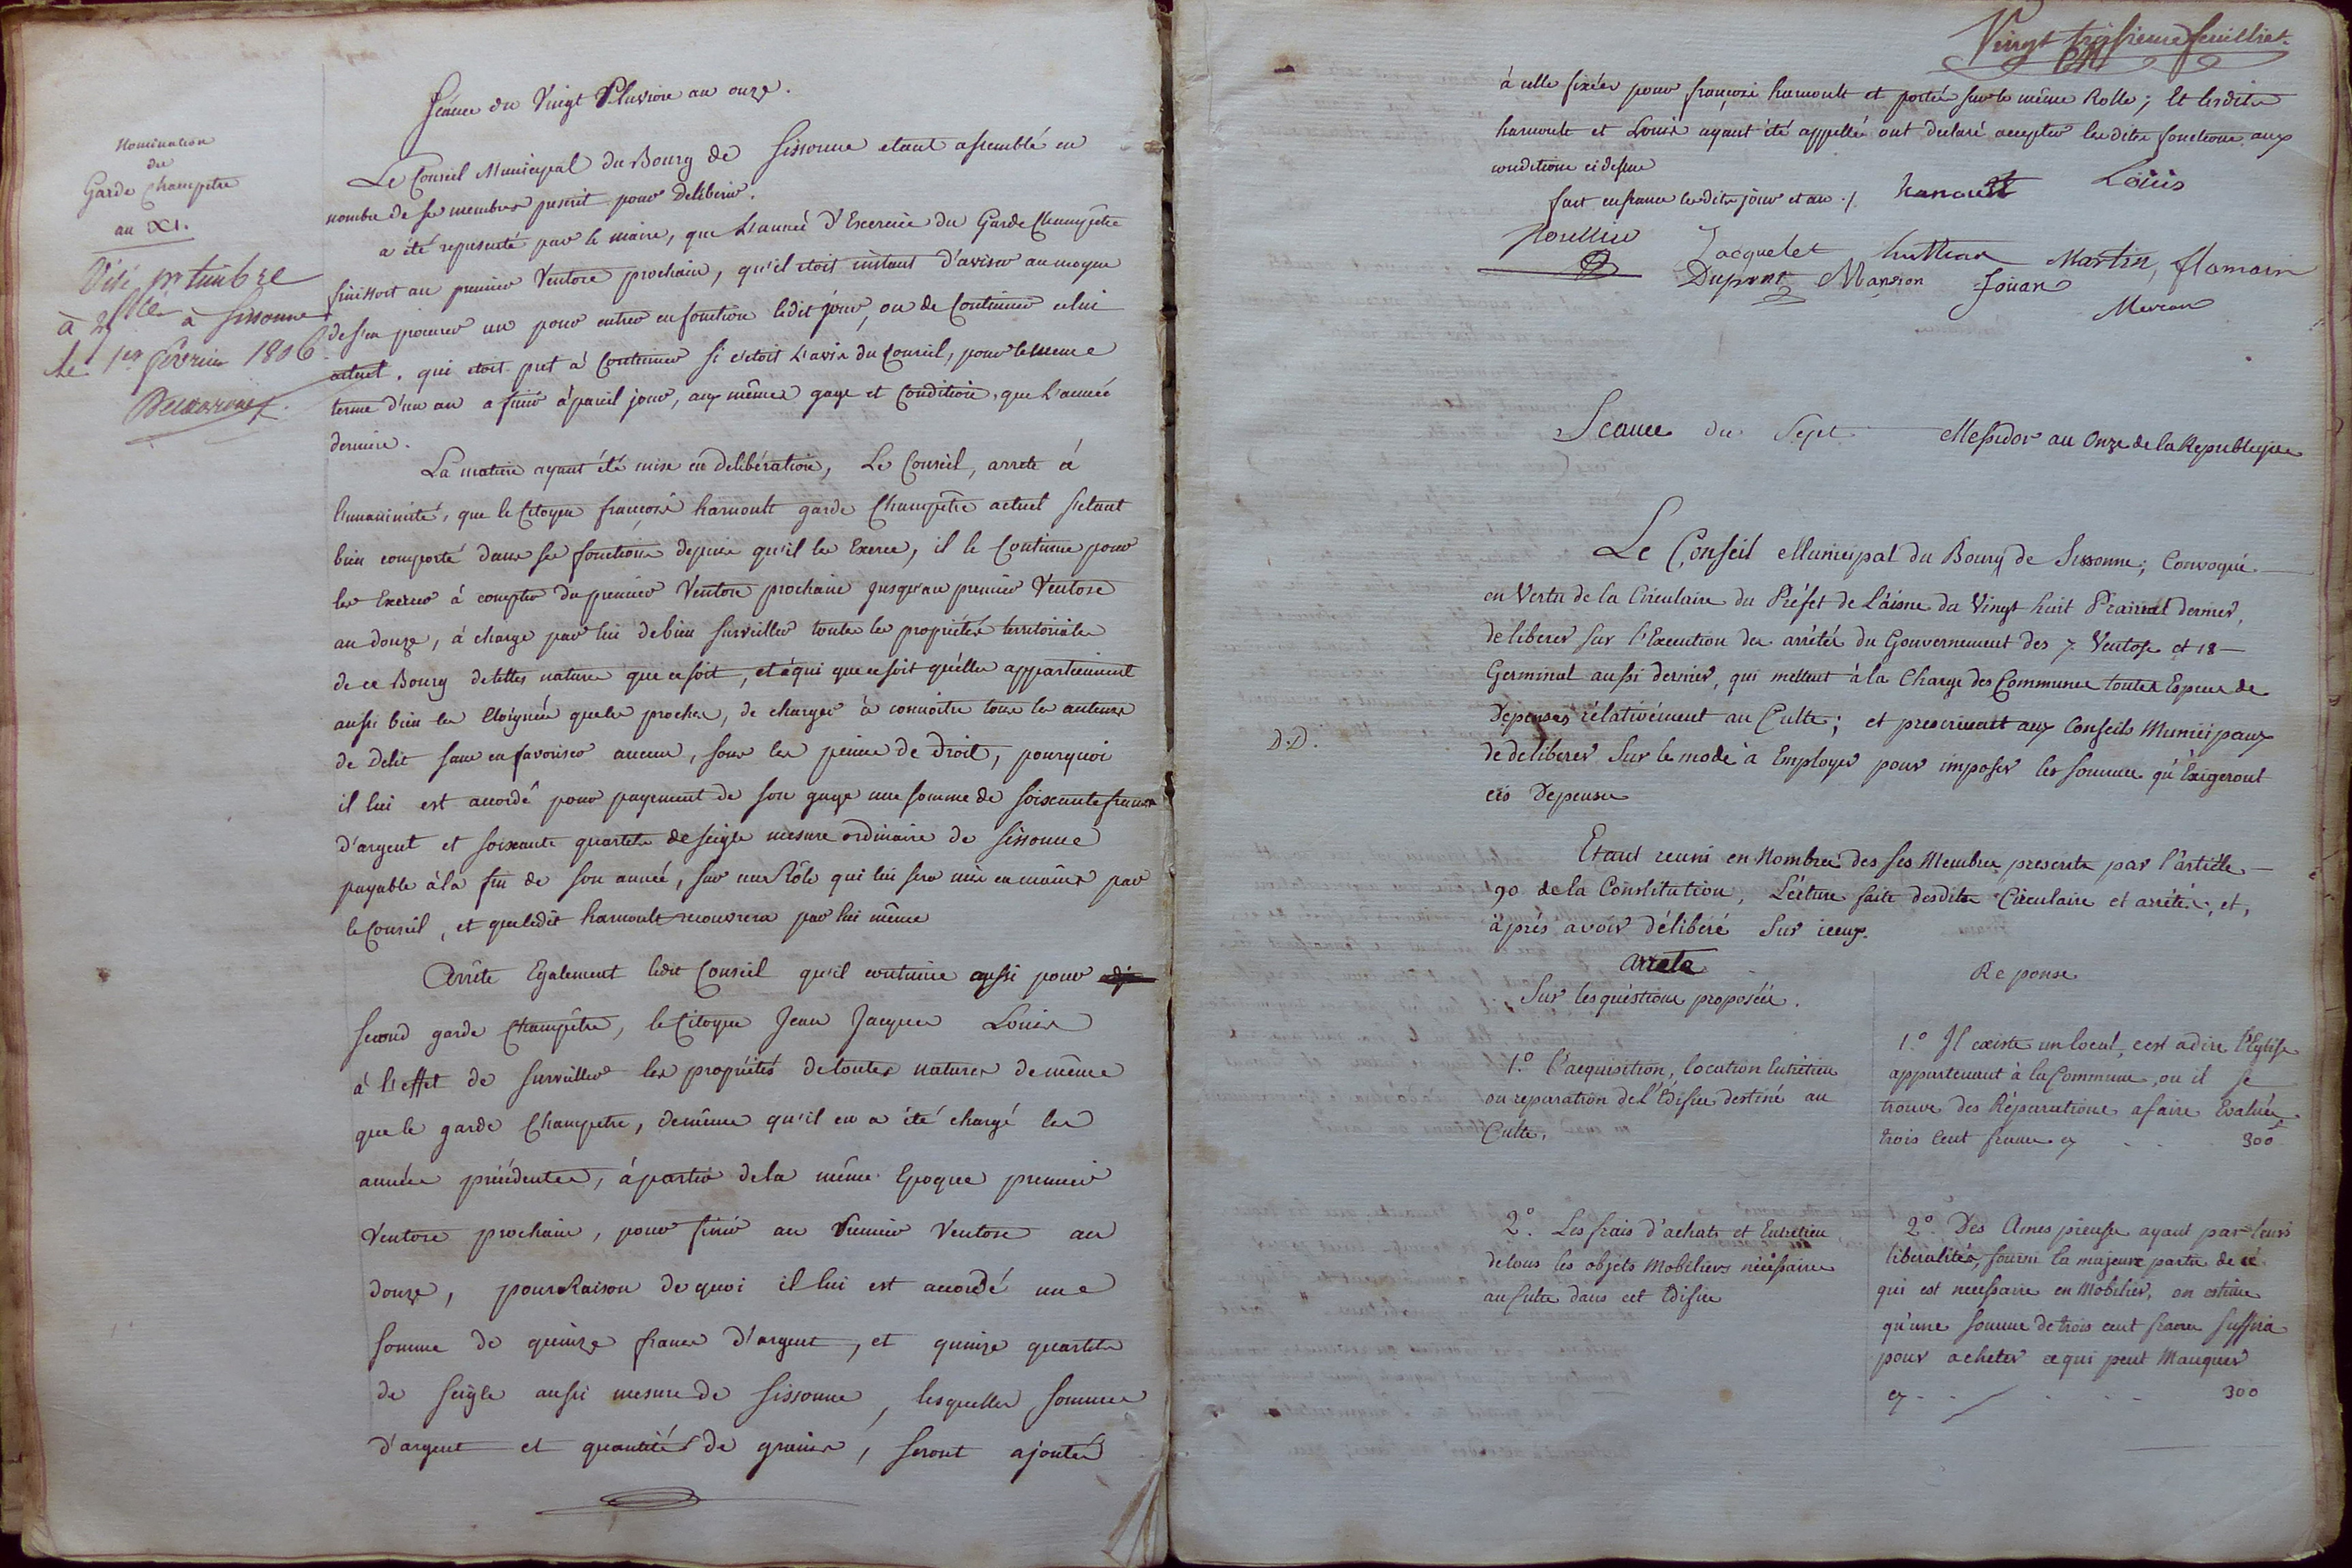 Séance du Vingt Pluviose an onze.
Nomination
du
Garde Champetre
an XI.
Visé pr timbre
à Sissonne
le 1er fevrier 1806
Le Conseil Municipal du Bourg de Sissonne etant assemblé en
nombre de ses membres prescrit pour Deliberer.
a été representé par le maire, que L'année d'Exercice du Garde Champêtre
finissoit au premier Ventose prochain, qu'il etoit instant d'aviser au moyen
de s'en procurer un pour entrer en fonction ledit jour, ou de Continuer celui
actuel, qui etoit pret à Continuer si c'etoit L'avis du Conseil, pour le meme
terme d'un an a finir à pareil jour, aux mêmes gage et Condition, que L'année
derniere.
La matiere ayant été mise en deliberation, Le Conseil, arrete à
l'unanimité, que le Citoyen françois harnoult garde Champêtre actuel s'etant
bien comporté dans ses fonctions depuis qu'il les Exerce, il le Continue pour
les Exercer à compter du premier Ventose prochain jusqu'au premier Ventose
an douze, à charge par lui de bien surveiller toutes les proprietés territoriales
de ce Bourg de telles nature que ce soit, et à qui que ce soit qu'elles appartiennent
aussi bien les Eloignées que les proches, de charger à connoitre tous les auteurs
de delit sans en favoriser aucun, sous les peines de Droit, pourquoi
il lui est accordé pour payement de son gage une somme de soixante francs
d'argent et soixante quartels de seigle mesure ordinaire de Sissonne
payable à la fin de son année, sur un Rôle qui lui sera mis en mains par
le Conseil, et que ledit harnoult recouvrera par lui même
Arrête Egalement ledit Conseil qu'il continue aussi pour
second garde Champêtre, le Citoyen Jean Jacques Louis
à l'effet de surveiller les propriétés de toutes natures de même
que le garde Champetre, de même qu'il en a été chargé les
années précédentes, à partir de la même Epoque premier
Ventose prochain, pour finir au Premier Ventose an
douze, pour Raison de quoi il lui est accordé une
somme de quinze francs d'argent, et quinze quartels
de seigle aussi mesure de Sissonne, lesquelles sommes
d'argent et quantités de grains, seront ajoutés
Vingt troisieme feuillet.
à celle fixées pour françois harnoult et portée sur le même Rolle; Et lesdits
harnoult et Louis ayant été appellés ont declaré accepter lesdites fonctions aux
conditions ci dessus
fait en seance lesdits jour et an ./. harnoult Louis
Jacquelet Martin, flamain
Dupont Manrion Jouan
Seance du Sept Messidor an Onze de la Republique
Le Conseil Municipal du Bourg de Sissonne; Convoqué
en Vertu de la Circulaire du Préfet de L'aisne du Vingt huit Prairial dernier,
deliberer sur l'Execution des arrêtés du Gouvernement des 7 Ventose et 18
Germinal aussi dernier, qui mettent à la Charge des Communes toutes Especes de
Depenses rélativement au Culte; et prescrivent aux Conseils Municipaux
D.D.
de deliberer Sur le mode à Employer pour imposer les sommes qu'Exigeront
ces Depenses
Etant reuni en Nombre des ses Membres prescrits par l'article
90 de la Constitution, Lécture faite desdits Circulaire et arrêtés, et,
àprés avoir délibéré sur iceux.
Arrete
Sur les questions proposées.
Reponse
1.º L'acquisition, location Entretien
ou reparation de l'Edifice destiné au
Culte.
1.º Il existe un local, cest adire l'Eglise
appartenant à la Commune, ou il se
trouve des Réparations afaire Evaluées
trois Cent francs cy . . 300
2.º Les frais d'achats et Entretien
de tous les objets Mobiliers nécessaires
au Culte dans cet Edifice
2.º Des Ames pieuses ayant par leurs
liberalités, fourni la majeure partie de ce
qui est necessaire en Mobilier, on estime
qu'une somme de trois cent francs suffira
pour acheter ce qui peut Manquer
cy - - - - 300